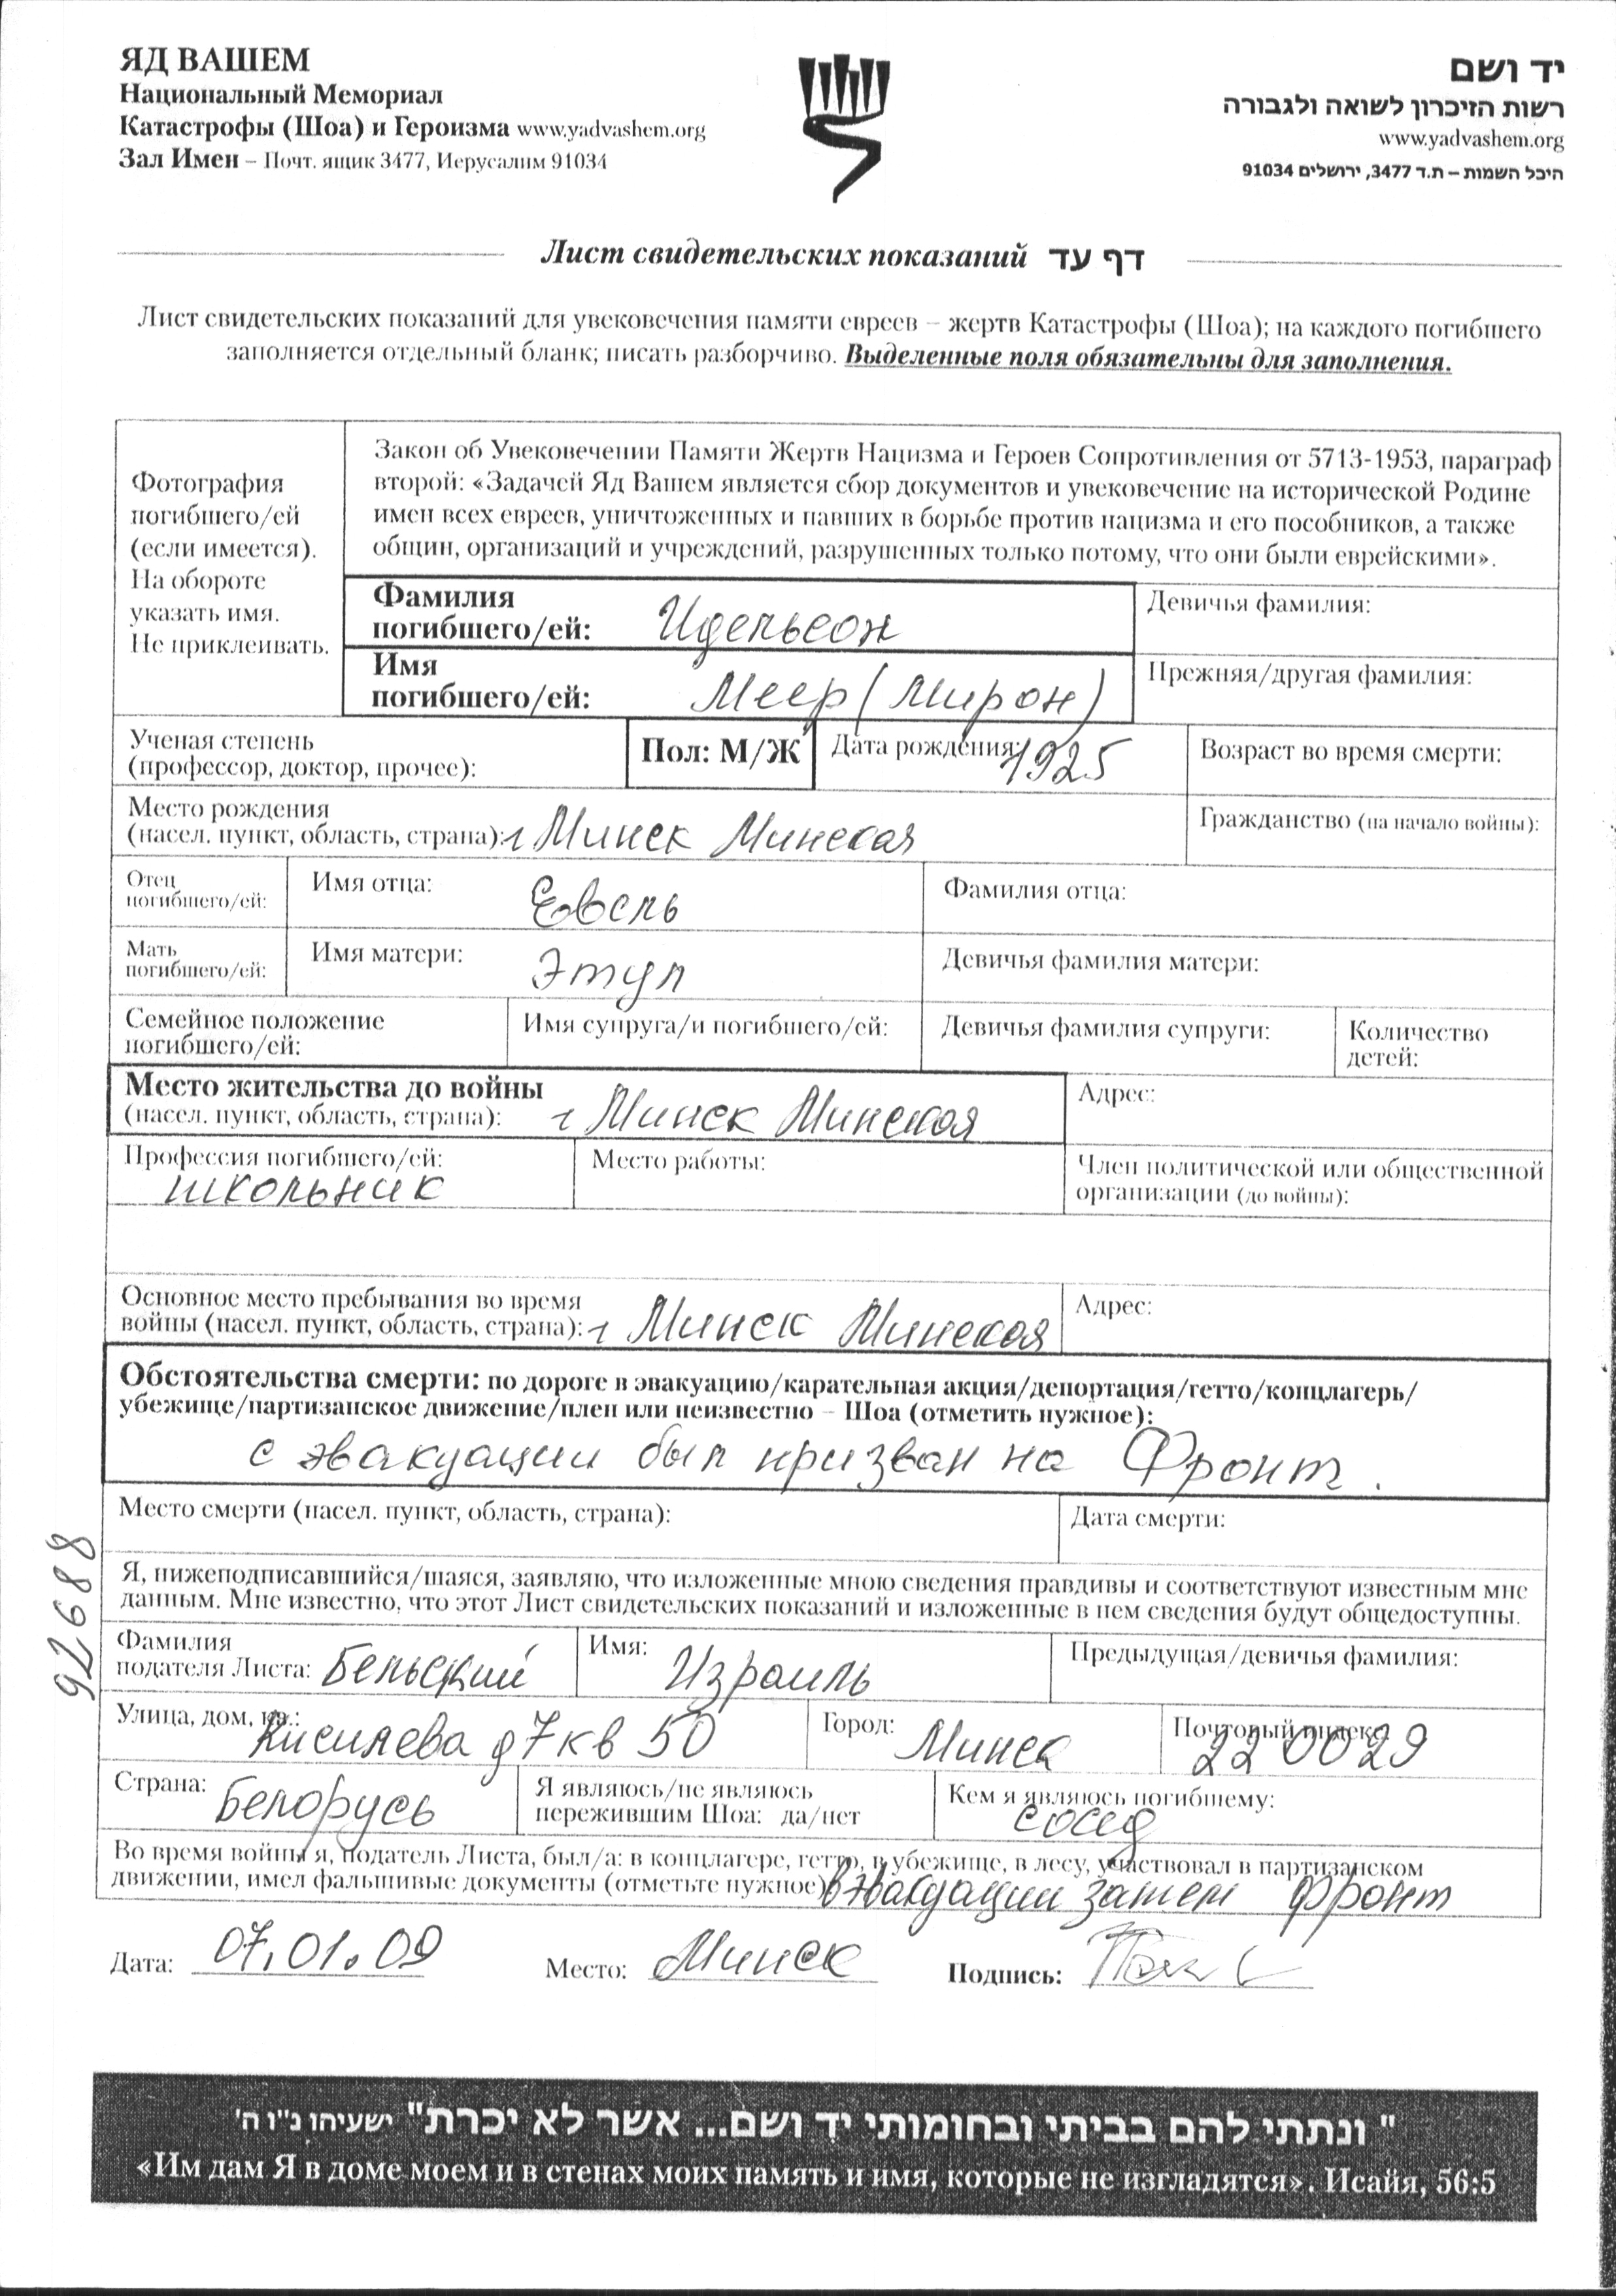 ЯД ВАШЕМ
Национальный Мемориал
Катастрофы (Шоа) и Героизма www.yadvashem.org
Зал Имен – Почт. ящик 3477, Иерусалим 91034
יד ושם
רשות הזיכרון לשואה ולגבורה
www.yadvashem.org
היכל השמות – ת.ד 3477, ירושלים 91034
Лист свидетельских показаний דף עד
Лист свидетельских показаний для увековечения памяти евреев – жертв Катастрофы (Шоа); на каждого погибшего
заполняется отдельный бланк; писать разборчиво. Выделенные поля обязательны для заполнения.
Фотография
погибшего/ей
(если имеется).
На обороте
указать имя.
Не приклеивать.
Закон об Увековечении Памяти Жертв Нацизма и Героев Сопротивления от 5713-1953, параграф
второй: «Задачей Яд Вашем является сбор документов и увековечение на исторической Родине
имен всех евреев, уничтоженных и павших в борьбе против нацизма и его пособников, а также
общин, организаций и учреждений, разрушенных только потому, что они были еврейскими».
Фамилия
погибшего/ей: Идельсон
Девичья фамилия:
Имя
погибшего/ей: Меер (Мирон)
Прежняя/другая фамилия:
Ученая степень
(профессор, доктор, прочее):
Пол: М/Ж
Дата рождения: 1925
Возраст во время смерти:
Место рождения
(насел. пункт, область, страна): г Минск Минская
Гражданство (на начало войны):
Отец
погибшего/ей:
Имя отца: Евель
Фамилия отца:
Мать
погибшего/ей:
Имя матери: Этул
Девичья фамилия матери:
Семейное положение
погибшего/ей:
Имя супруга/и погибшего/ей:
Девичья фамилия супруги:
Количество
детей:
Место жительства до войны
(насел. пункт, область, страна): г Минск Минская
Адрес:
Профессия погибшего/ей:
школьник
Место работы:
Член политической или общественной
организации (до войны):
Основное место пребывания во время
войны (насел. пункт, область, страна): г Минск Минская
Адрес:
Обстоятельства смерти: по дороге в эвакуацию/карательная акция/депортация/гетто/концлагерь/
убежище/партизанское движение/плен или неизвестно – Шоа (отметить нужное):
с эвакуации был призван на Фронт.
Место смерти (насел. пункт, область, страна):
Дата смерти:
92688
Я, нижеподписавшийся/шаяся, заявляю, что изложенные мною сведения правдивы и соответствуют известным мне
данным. Мне известно, что этот Лист свидетельских показаний и изложенные в нем сведения будут общедоступны.
Фамилия
подателя Листа: Бельский
Имя: Израиль
Предыдущая/девичья фамилия:
Улица, дом, кв.: Кисилева д 7 кв 50
Город: Минск
Почтовый индекс: 220029
Страна: Белорусь
Я являюсь/не являюсь
пережившим Шоа: да/нет
Кем я являюсь погибшему:
сосед
Во время войны я, податель Листа, был/а: в концлагере, гетто, в убежище, в лесу, участвовал в партизанском
движении, имел фальшивые документы (отметьте нужное) в эвакуации затем фронт
Дата: 07.01.09
Место: Минск
Подпись:
" ונתתי להם בביתי ובחומותי יד ושם... אשר לא יכרת" ישעיהו נ"ו ה'
«Им дам Я в доме моем и в стенах моих память и имя, которые не изгладятся». Исайя, 56:5